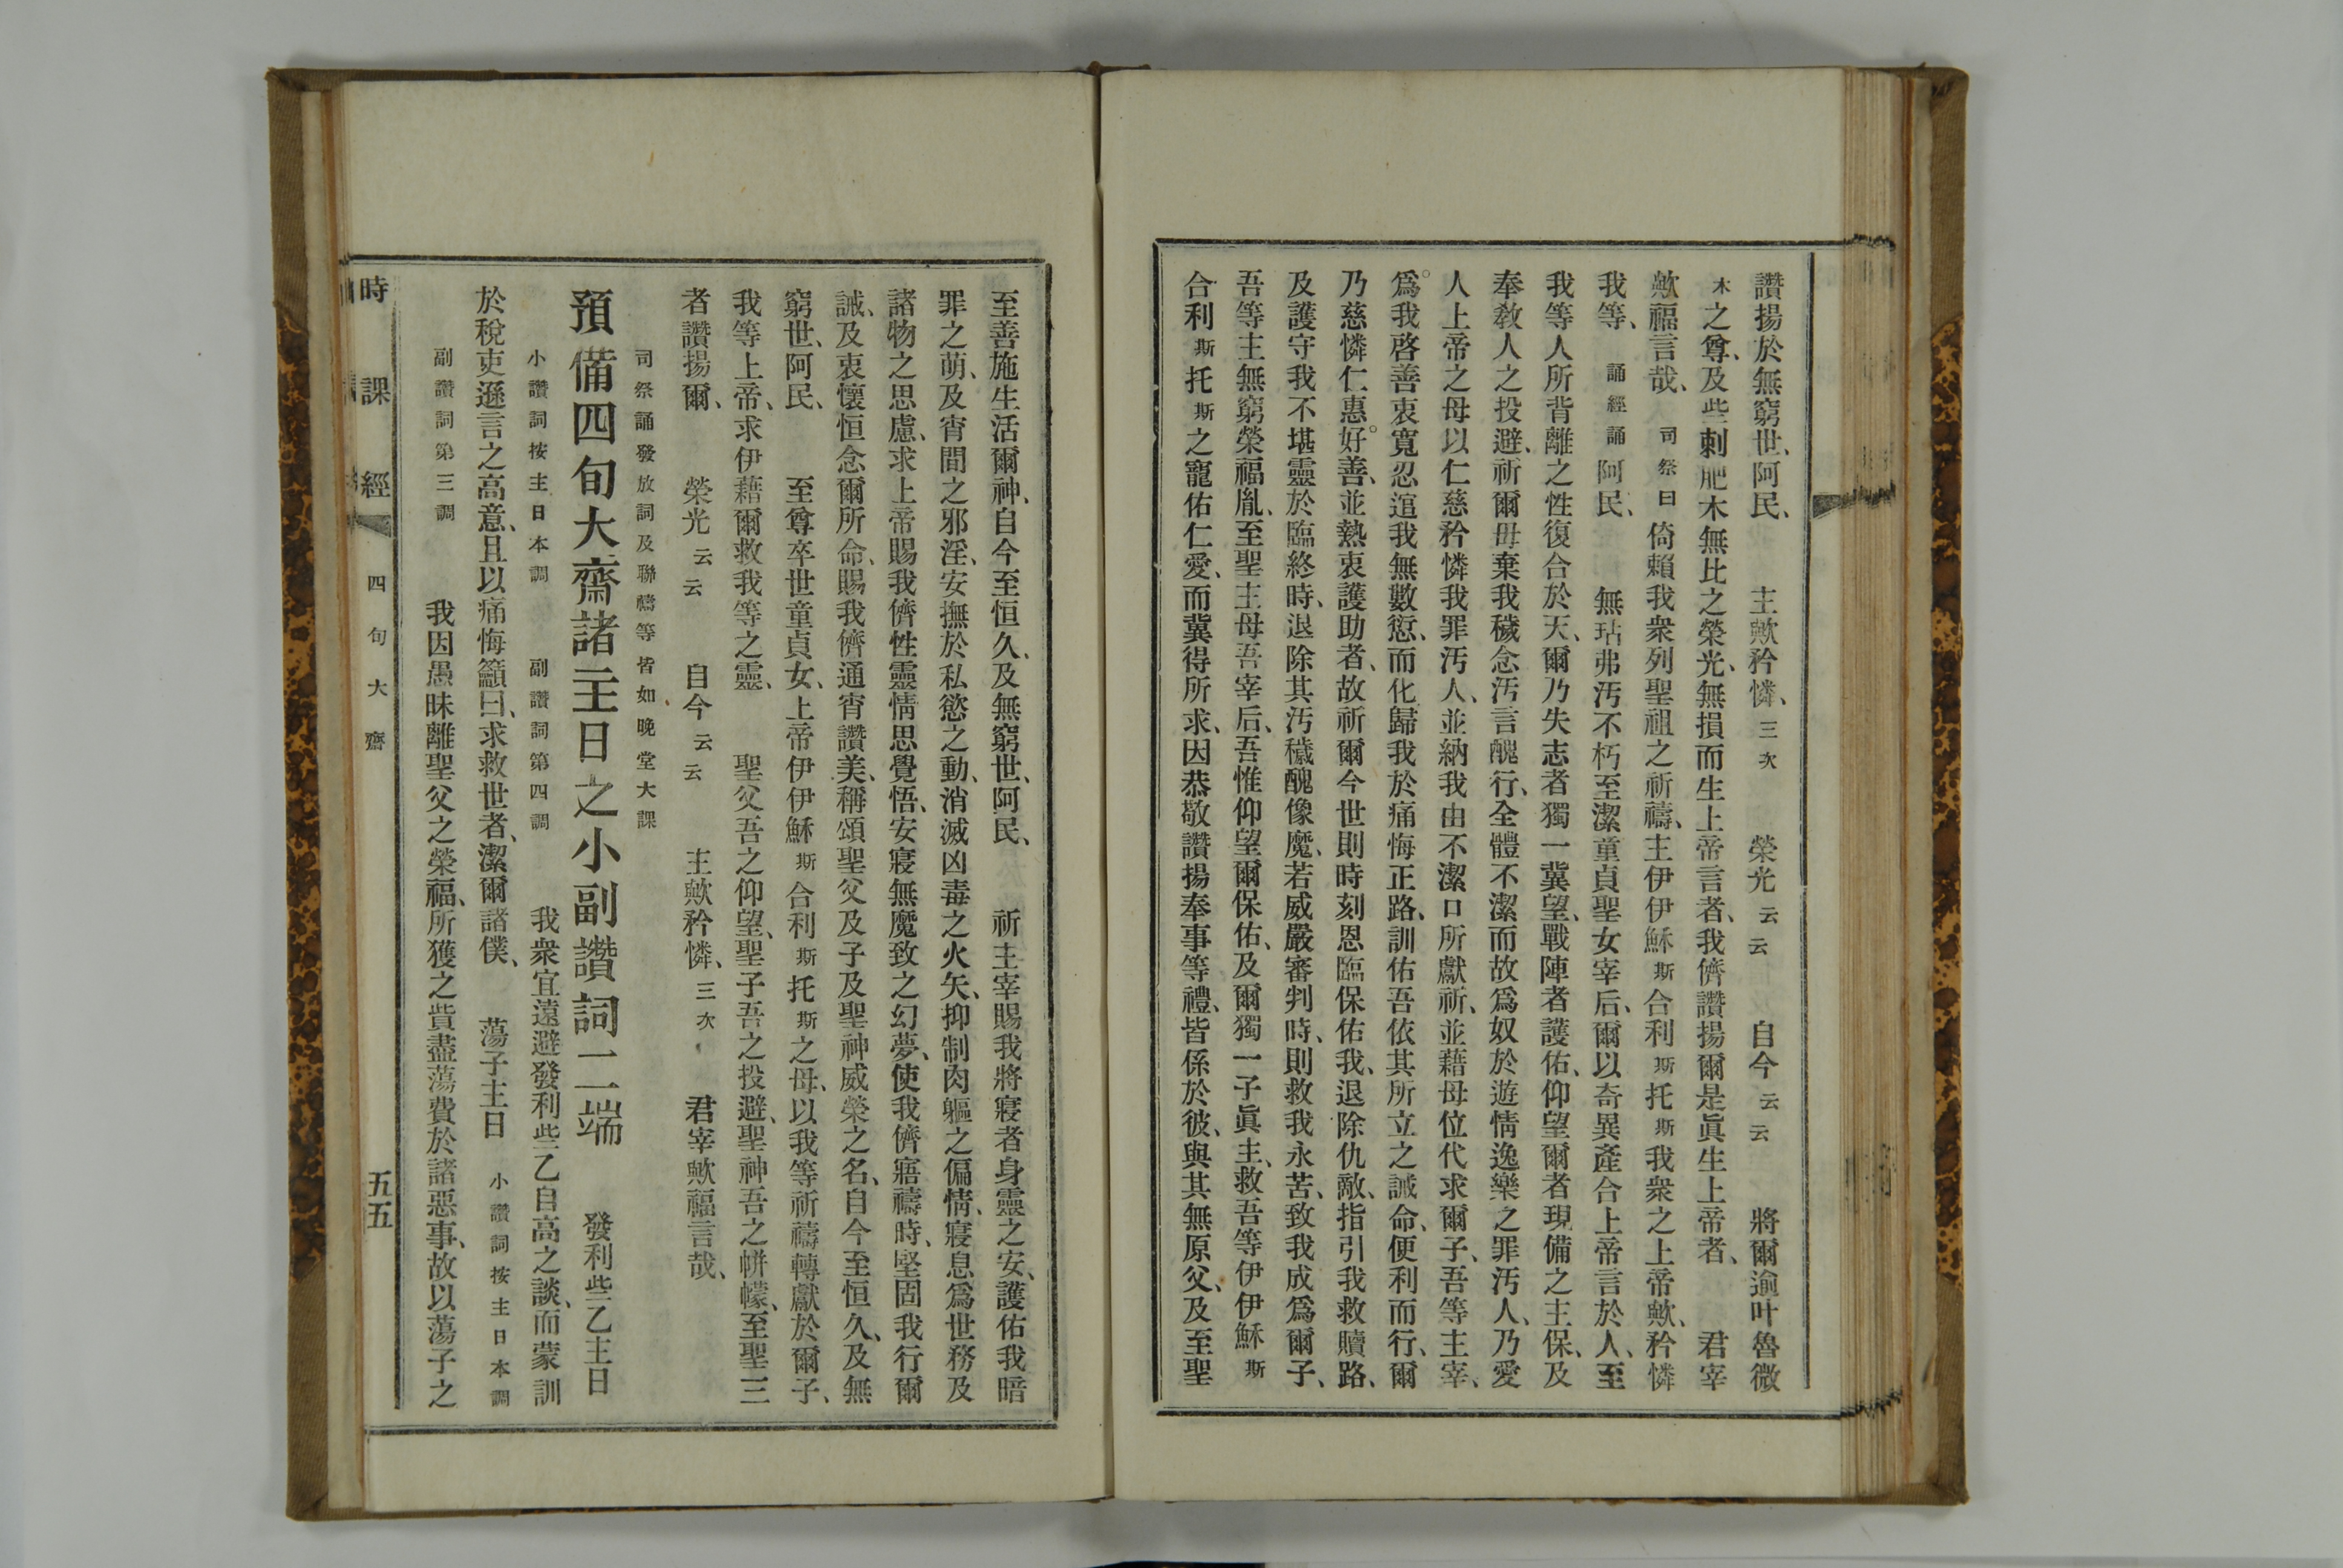 讚揚於無窮世、阿民、 主歟矜憐、三次 榮光云云 自今云云 將爾逾叶魯微
木之尊、及些刺肥木無比之榮光、無損而生上帝言者、我儕讚揚爾是眞生上帝者、 君宰
歟福言哉、 司祭曰 倚賴我衆列聖祖之祈禱、主伊伊穌斯合利斯托斯我衆之上帝歟、矜憐
我等、 誦經誦 阿民、 無玷弗汚不朽至潔童貞聖女宰后、爾以奇異產合上帝言於人、至
我等人所背離之性復合於天、爾乃失志者獨一冀望、戰陣者護佑、仰望爾者現備之主保、及
奉敎人之投避、祈爾毋棄我穢念汚言醜行、全體不潔而故爲奴於遊情逸樂之罪汚人、乃愛
人上帝之母以仁慈矜憐我罪汚人、並納我由不潔口所獻祈、並藉母位代求爾子、吾等主宰、
爲我啓善衷寬忍逭我無數愆、而化歸我於痛悔正路、訓佑吾依其所立之誡命、便利而行、爾
乃慈憐仁惠好善、並熱衷護助者、故祈爾今世則時刻恩臨保佑我、退除仇敵、指引我救贖路、
及護守我不堪靈於臨終時、退除其汚穢醜像魔、若威嚴審判時、則救我永苦、致我成爲爾子、
吾等主無窮榮福胤、至聖主母吾宰后、吾惟仰望爾保佑、及爾獨一子眞主、救吾等伊伊穌斯
合利斯托斯之寵佑仁愛、而冀得所求、因恭敬讚揚奉事等禮、皆係於彼、與其無原父、及至聖
至善施生活爾神、自今至恒久、及無窮世、阿民、 祈主宰賜我將寢者身靈之安、護佑我暗
罪之萌、及宵間之邪淫、安撫於私慾之動、消滅凶毒之火矢、抑制肉軀之偏情、寢息爲世務及
諸物之思慮、求上帝賜我儕性靈情思覺悟、安寢無魔致之幻夢、使我儕寤禱時、堅固我行爾
誡、及衷懷恒念爾所命、賜我儕通宵讚美、稱頌聖父及子及聖神威榮之名、自今至恒久、及無
窮世、阿民、 至尊卒世童貞女、上帝伊伊穌斯合利斯托斯之母、以我等祈禱轉獻於爾子、
我等上帝、求伊藉爾救我等之靈、 聖父吾之仰望、聖子吾之投避、聖神吾之帡幪、至聖三
者讚揚爾、 榮光云云 自今云云 主歟矜憐、三次 君宰歟福言哉、
司祭誦發放詞及聯禱等皆如晚堂大課
預備四旬大齋諸主日之小副讚詞二端 發利些乙主日
小讚詞按主日本調 副讚詞第四調 我衆宜遠避發利些乙自高之談、而蒙訓
於稅吏遜言之高意、且以痛悔籲曰、求救世者、潔爾諸僕、 蕩子主日 小讚詞按主日本調
副讚詞第三調 我因愚昧離聖父之榮福、所獲之貲盡蕩費於諸惡事、故以蕩子之
時課經 四旬大齋 五五